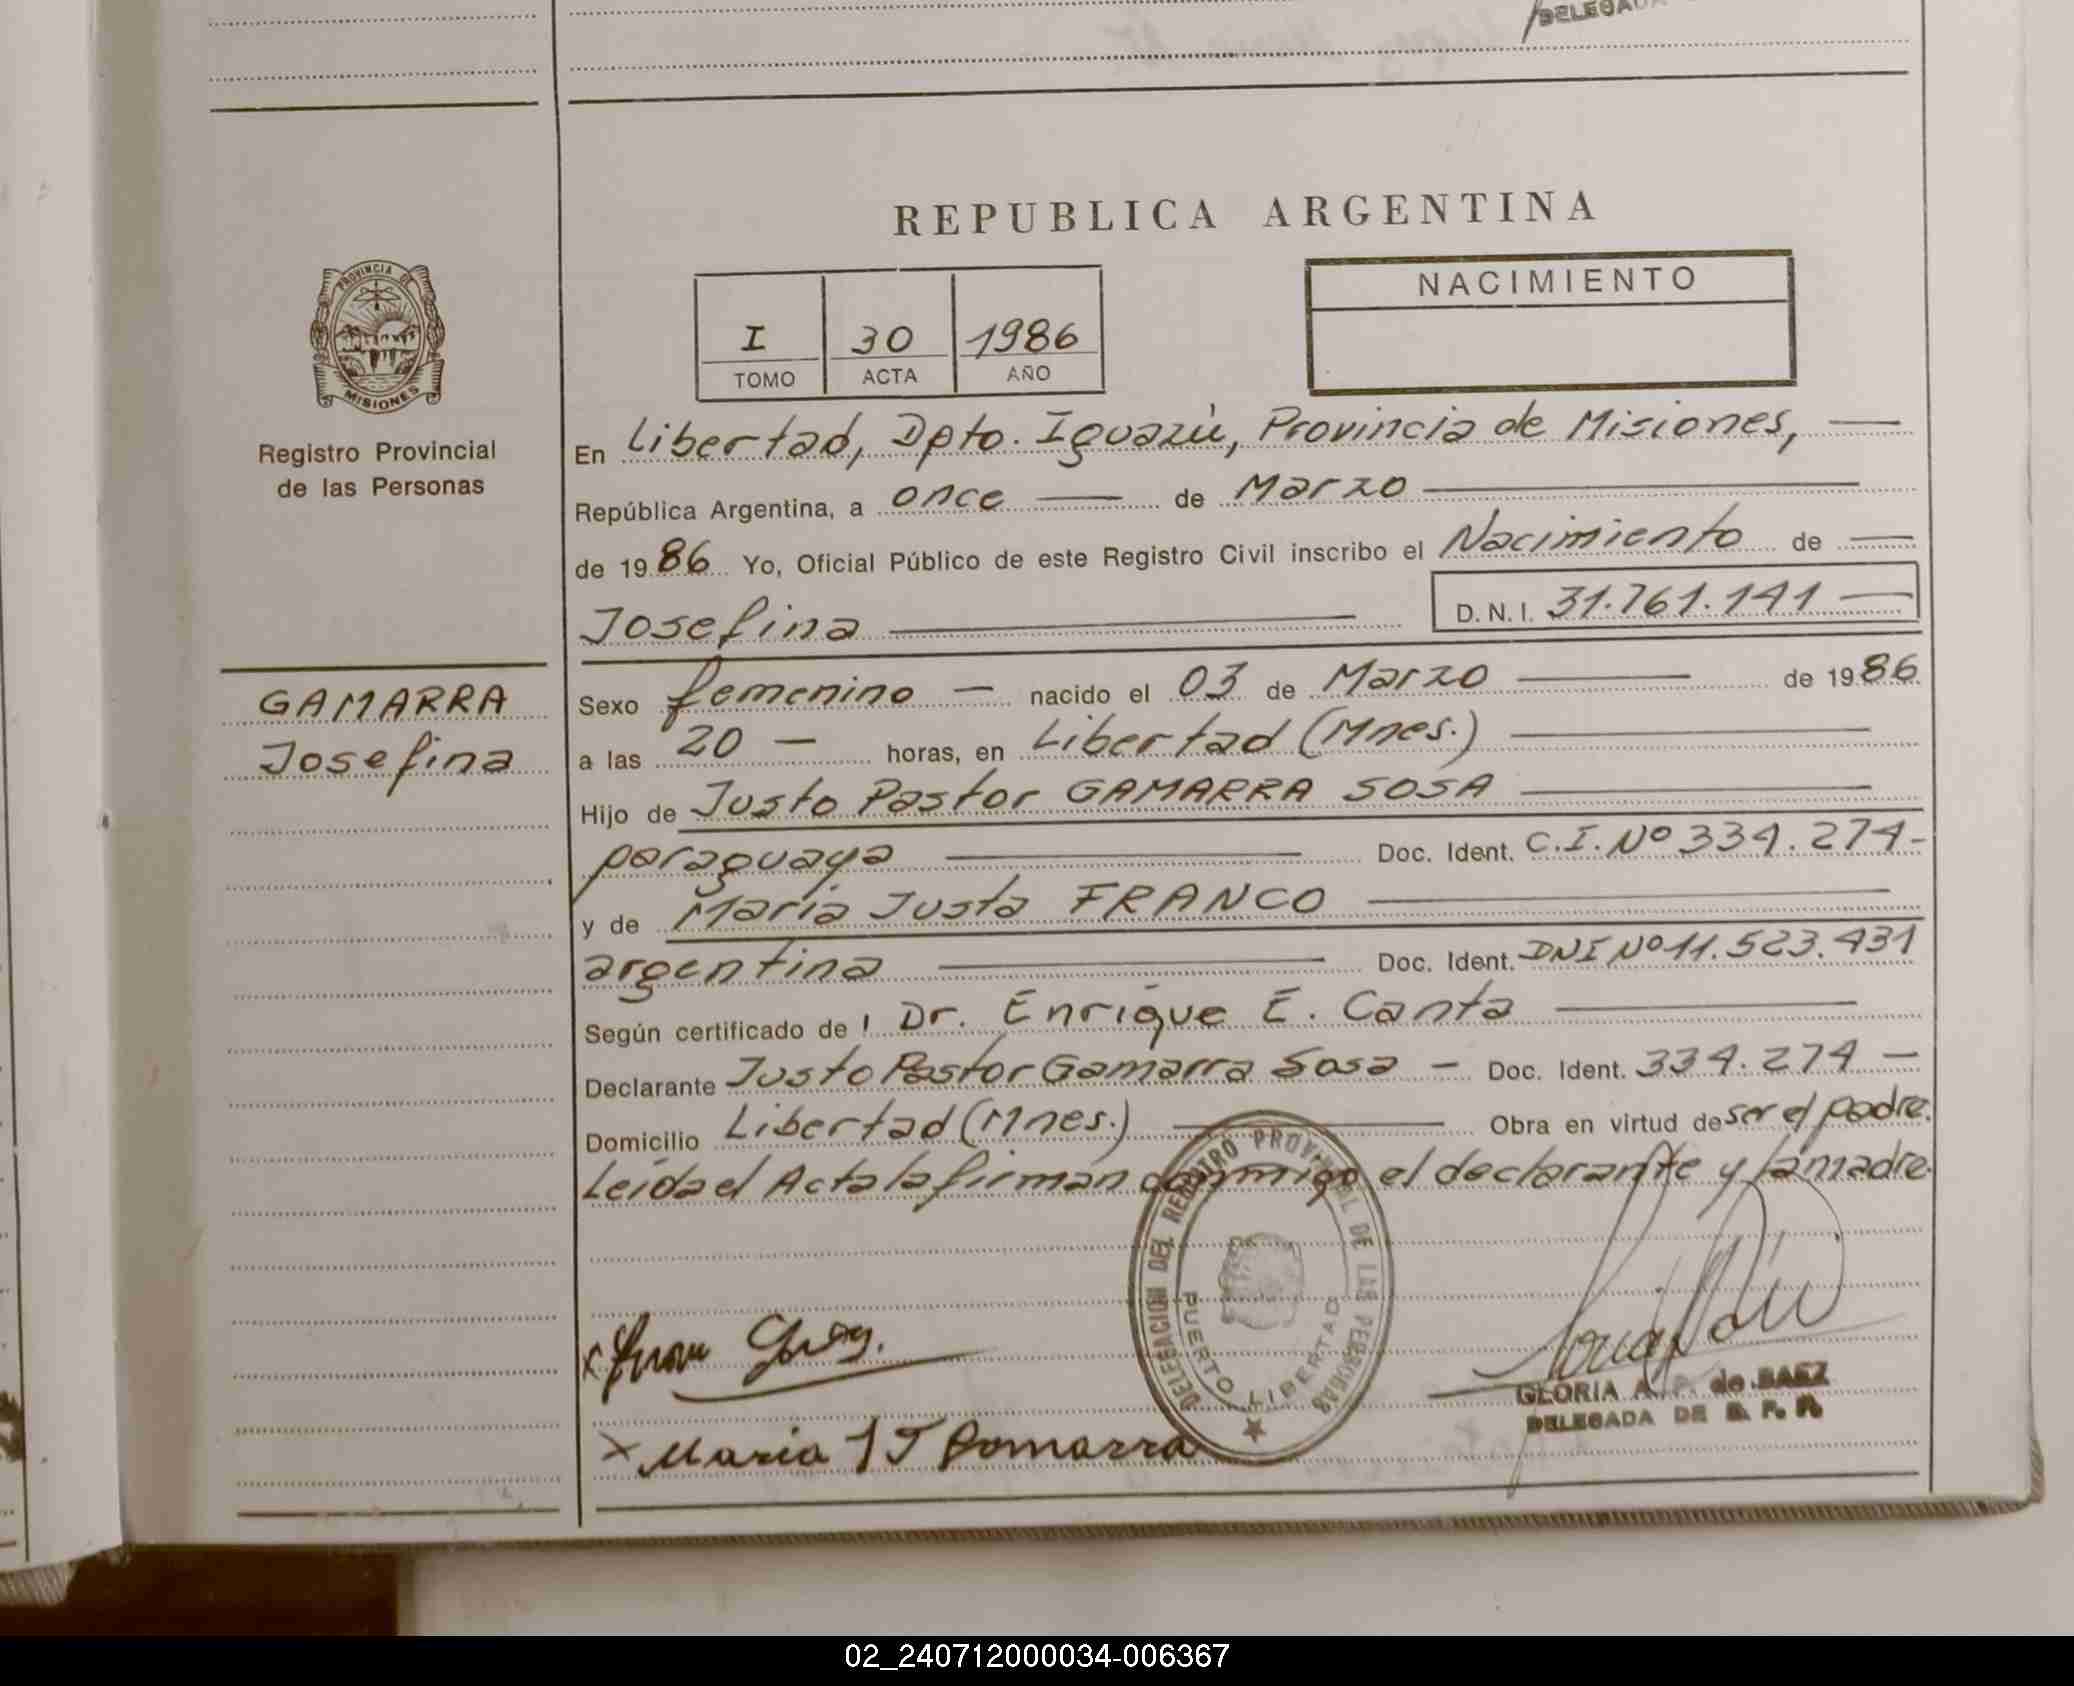 DELEGADA
REPUBLICA ARGENTINA
PROVINCIA DE
MISIONES
Registro Provincial
de las Personas
I 30 1986
TOMO ACTA AÑO
NACIMIENTO
En Libertad, Dpto. Iguazú, Provincia de Misiones, —
República Argentina, a once — de Marzo —
de 1986 Yo, Oficial Público de este Registro Civil inscribo el Nacimiento de —
Josefina — D. N. I. 31.761.141 —
GAMARRA
Josefina
Sexo femenino — nacido el 03 de Marzo — de 1986
a las 20 — horas, en Libertad (Mnes.) —
Hijo de Justo Pastor GAMARRA SOSA —
paraguaya — Doc. Ident. C.I. Nº 334.274-
y de María Justa FRANCO —
argentina — Doc. Ident. DNI Nº 11.523.431
Según certificado de Dr. Enrique E. Canta —
Declarante Justo Pastor Gamarra Sosa — Doc. Ident. 334.274 —
Domicilio Libertad (Mnes.) — Obra en virtud de ser el padre.
Leída el Acta la firman conmigo el declarante y la madre.
DELEGACION DEL REGISTRO PROVINCIAL DE LAS PERSONAS
PUERTO LIBERTAD
GLORIA A. P. de BAEZ
DELEGADA DE
x Maria
02_240712000034-006367